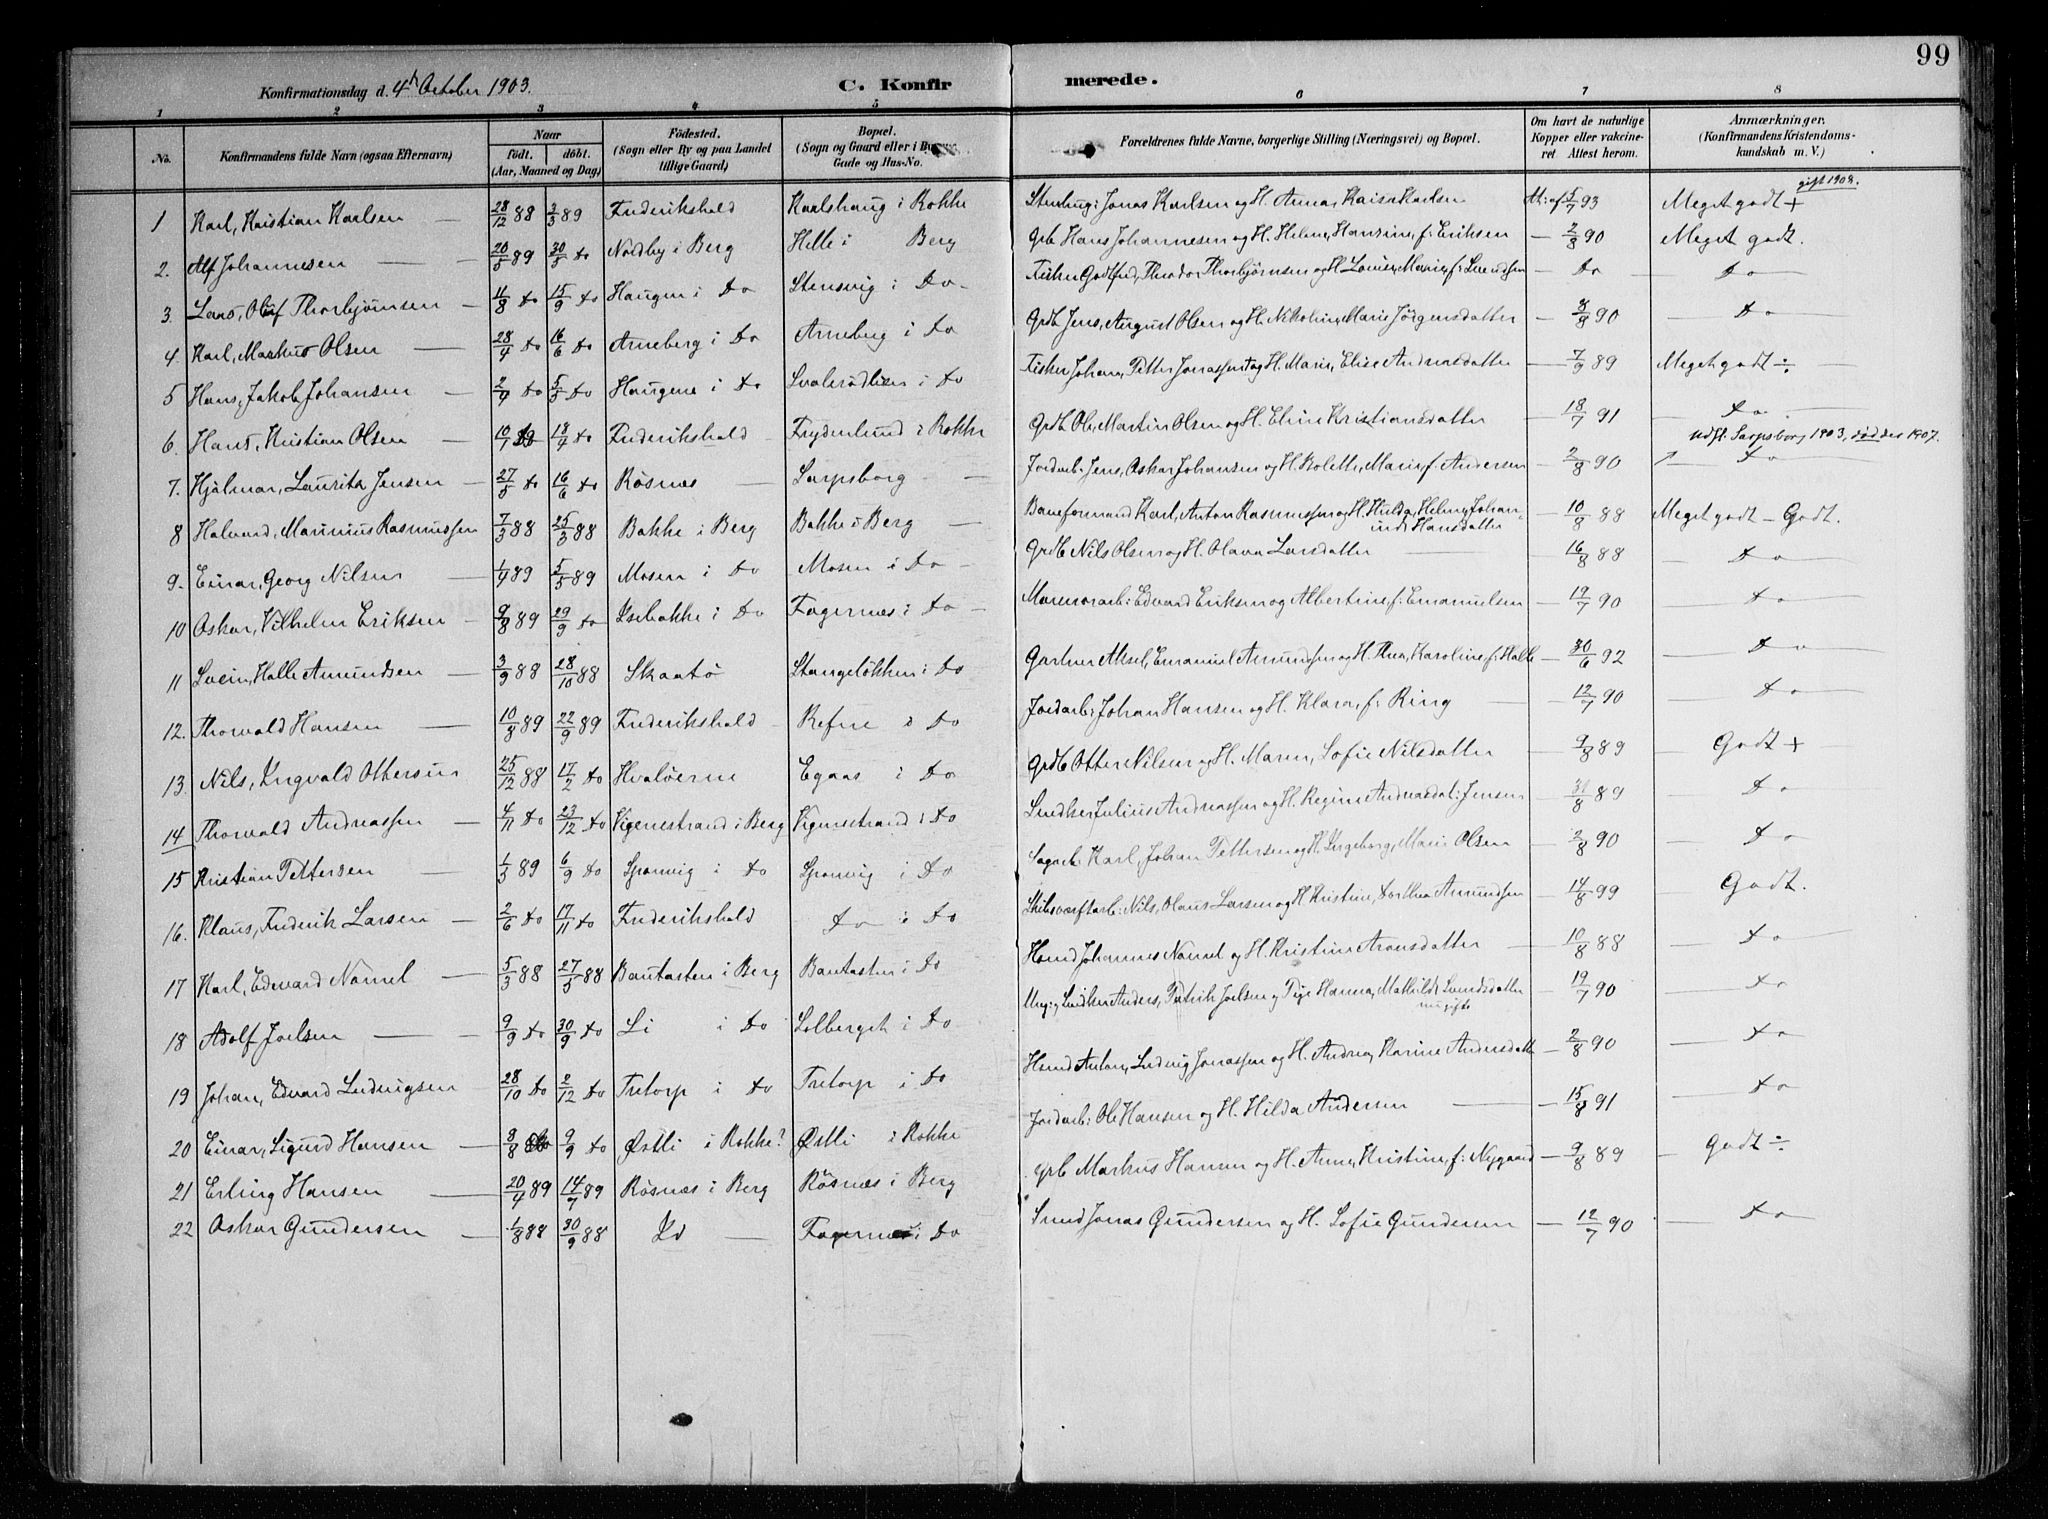 99
Konfirmationsdag d. 4de October 1903. C. Konfirmerede.
1 2 3 4 5 6 7 8
No. Konfirmandens fulde Navn (ogsaa Efternavn) Naar født. døbt. (Aar, Maaned og Dag) Födested. (Sogn eller By og paa Landet tillige Gaard) Bopæl. (Sogn og Gaard eller i By, Gade og Hus-No. Forældrenes fulde Navne, borgerlige Stilling (Næringsvei) og Bopæl. Om havt de naturlige Kopper eller vakcineret Attest herom. Anmærkninger. (Konfirmandens Kristendomskundskab m. V.)
1 Karl, Kristian Karlsen — 28/12 88 3/3 89 Frederikshald Karlshaug i Rokke Stenhug: Jonas Karlsen og H. Anna Kaisa Karlsen At: af 5/7 93 Meget godt + gift 1908.
2. Alf Johannesen — 20/5 89 30/5 do Nordby i Berg Helle i Berg Grb Hans Johannesen og H. Helene, Hansine, f: Eriksen — 2/8 90 Meget godt.
3. Lars, Oluf Thorbjørnsen — 11/8 do 15/9 do Haugen i Do Stensvig i Do - Fisker Gotfred, Theodor Thorbjørnsen og H. Louise, Marie, f: Svendsen — Do — Do —
4. Karl, Markus Olsen — 28/4 do 16/6 do Arneberg i Do Arneberg i Do Grdb Jens, August Olsen og H. Nikoline, Marie Jörgensdatter — 8/8 90 — Do
5 Hans, Jakob Johansen — 2/4 do 5/5 do Haugene i Do Svalerødlien i Do Fisker Johan, Petter Jonassen og H. Marie, Elise Andreasdatter — 7/9 89 Meget godt ÷ —
6. Hans, Kristian Olsen — 10/7 do 18/4 do Frederikshald Frydenlund i Rokke Grdb Ole, Martin Olsen og H. Eline Kristiansdatter — 18/7 91 — Do —
7. Hjalmar, Lauritz Jensen — 27/5 do 16/6 do Røsnes — Sarpsborg — Jordarb: Jens, Oskar Johansen og H. Kolette, Marie, f. Andersen — 2/8 90 — Do — Udfl. Sarpsborg 1903, død der 1907.
8 Halvard, Marinius Rasmussen 7/3 88 25/3 88 Bakke i Berg Bakke i Berg — Baneformand Karl, Anton Rasmussen og H. Hilda, Helmine Johan- — 10/8 88 Meget godt – Godt.
Hansdatter
9. Einar, Georg Nilsen — 1/4 89 5/5 89 Mosen i Do Mosen i Do — Grdb Nils Olsen og H. Olava Larsdatter — 16/8 88 — Do
10 Oskar, Vilhelm Eriksen 9/8 89 29/9 do Isebakke i Do Fagernes i Do — Marmorarb: Edvard Eriksen og Albertine, f: Emanuelsen — 19/7 90 — Do
11 Svein, Halle Amundsen 3/9 88 28/10 88 Skaatø Stangeløkken i Do Gartner Aksel, Emanuel Amundsen og H. Thea, Karoline, f: Halle — 30/6 92 — Do
12. Thorvald Hansen — 10/8 89 22/9 89 Frederikshald Refne i Do Jordarb: Johan Hansen og H. Klara, f: Ring — 12/7 90 — Do
13. Nils, Yngvald Ottersen 25/12 88 17/2 do Hvaløerne Egaas i Do Grdb Otter Nilsen og H. Maren, Sofie Nilsdatter — 9/8 89 — Godt +
14 Thorvald Andreassen — 4/11 do 23/12 do Vigenestrand i Berg Vigenestrand i Do Snedker Julius Andreassen og H. Regine Andreasdat: Jensen — 31/8 89 — Do
15 Kristian Pettersen — 1/3 89 6/9 do Sponvig i Do Sponvig i Do Sagarb Karl, Johan Pettersen og H. Ingeborg, Marie Olsen — 2/8 90 — Do
16. Klaus, Frederik Larsen — 2/6 do 17/11 do Frederikshald Do i Do Skibsværftarb: Nils, Olaus Larsen og H. Kristine, Dorthea Amundsen — 14/8 99 — Godt.
17 Karl, Edevard Nomel — 5/3 88 27/5 88 Bautasten i Berg Bautasten i Do Hsmd Johannes Nomel og H. Kristine Aronsdatter — 10/8 88 — Do
18 Adolf Joelsen — 9/9 do 30/9 do Li i Do Solberget i Do Ung: Snedker Anders, Petrik Joelsen og Pige Hanna, Mathilde Svendsdatter — 19/7 90 — Do
nu gifte
19 Johan, Edvard Ludvigsen 28/10 do 2/12 do Tretorp i do Tretorp i Do Hsmd Anton, Ludvig Jonassen og H. Andrea, Karine Andersdatter — 2/8 90 — Do
20 Einar, Sigurd Hansen — 8/8 do 9/9 do Østli i Rokke? Østli i Rokke Jordarb: Ole Hansen og H. Hilda Andersen — 15/8 91 — Do
21 Erling Hansen — 20/4 89 14/7 89 Røsnes i Berg Røsnes i Berg Grb Markus Hansen og H. Anna, Kristine, f: Nygaard — 9/8 89 — Godt ÷
22 Oskar Gundersen — 1/8 88 30/9 88 Id — Fagernes i Do Smed Jonas Gundersen og H. Sofie Gundersen — 12/7 90 — Do